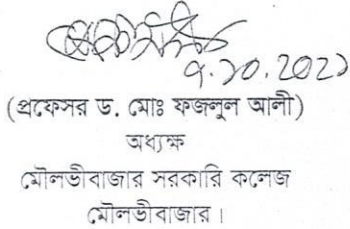 ৭.১০.২০২১
(প্রফেসর ড. মোঃ ফজলুল আলী)
অধ্যক্ষ
মৌলভীবাজার সরকারি কলেজ
মৌলভীবাজার।